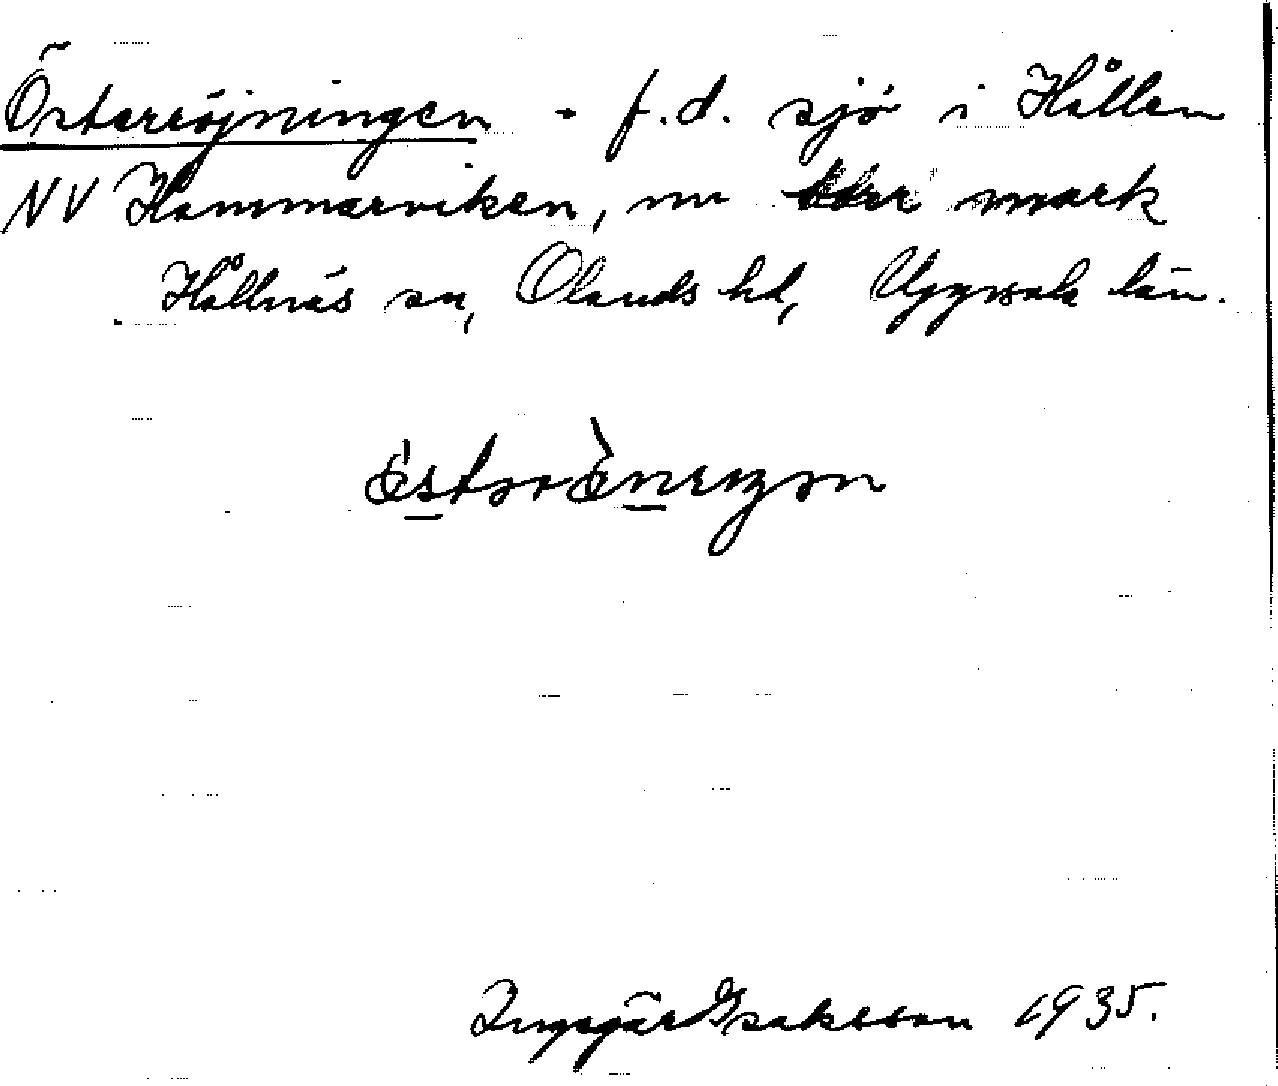 Österröjningen - f.d. sjö i Hållen
NV Hammarviken, nu torr mark
Hållnäs sn, Olands hd, Uppsala län.
Ingegär Isaksson 1935.